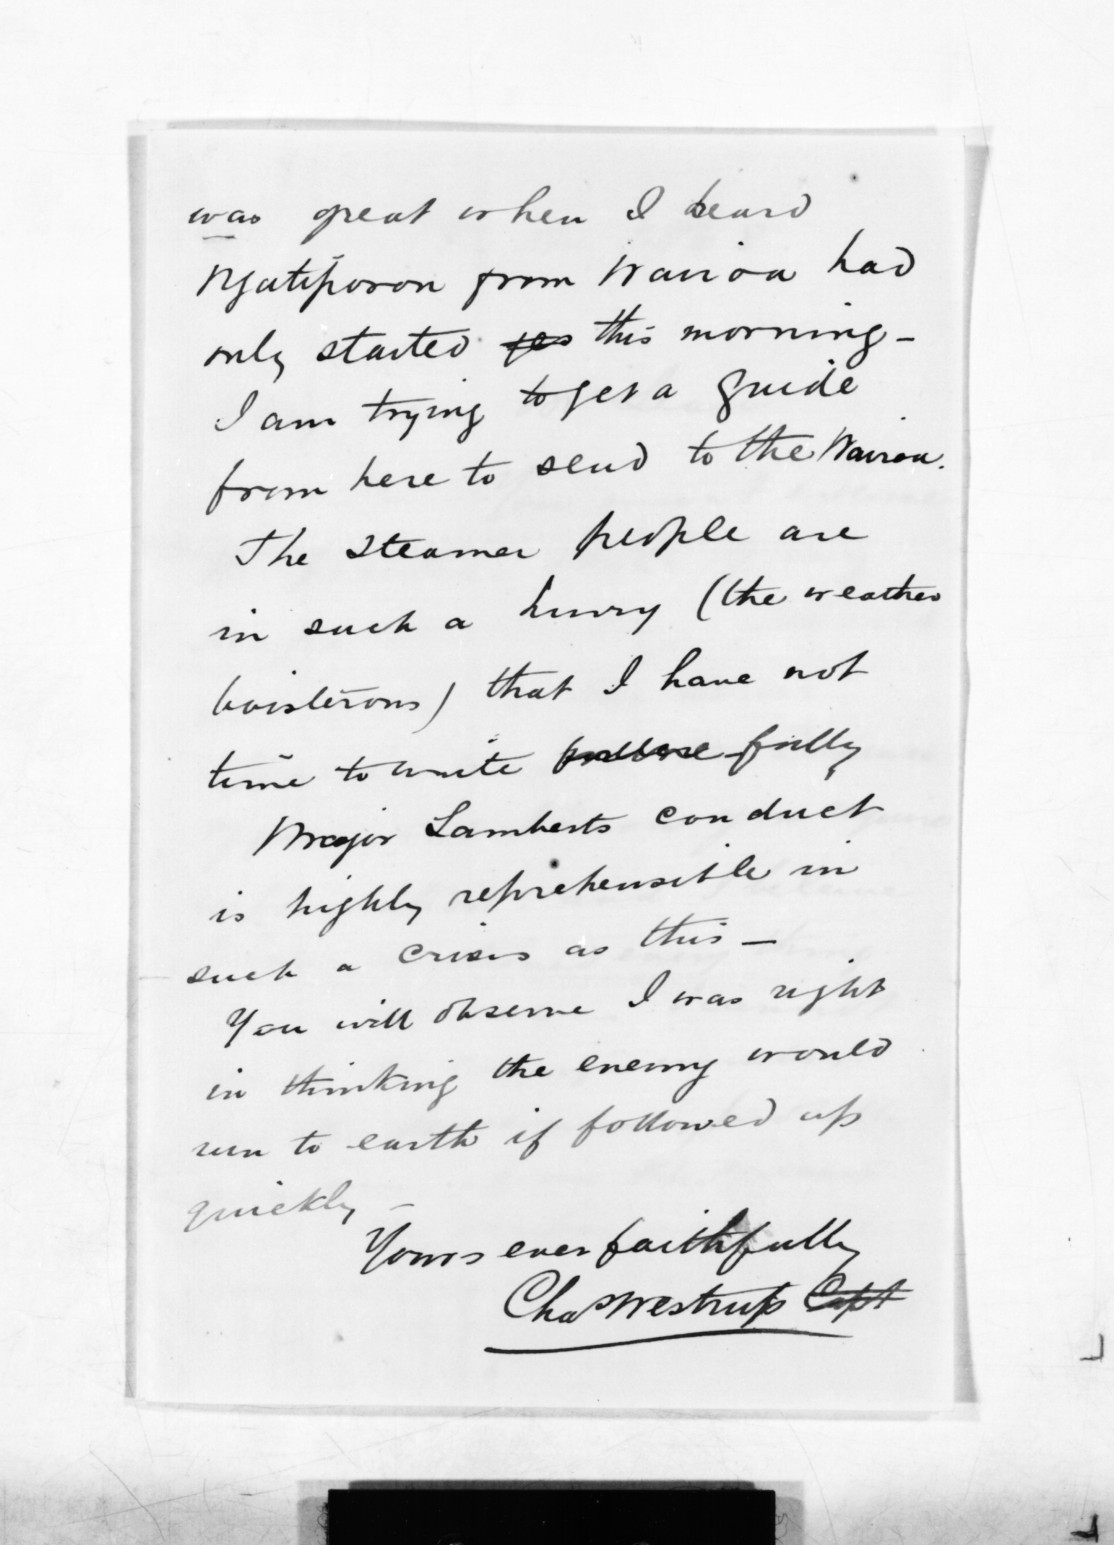 was great when I heard
Ngatiporou from Wairoa had
only started yes this morning -
I am trying to get a guide
from here to send to the Wairoa.
The steamer people are
in such a hurry (the weather
boisterous) that I have not
time to write fully
Major Lamberts conduct
is highly reprehensible in
such a crisis as this -
You will observe I was right
in thinking the enemy would
run to earth if followed up
quickly -
Yours ever faithfully
Chas Westrup Capt